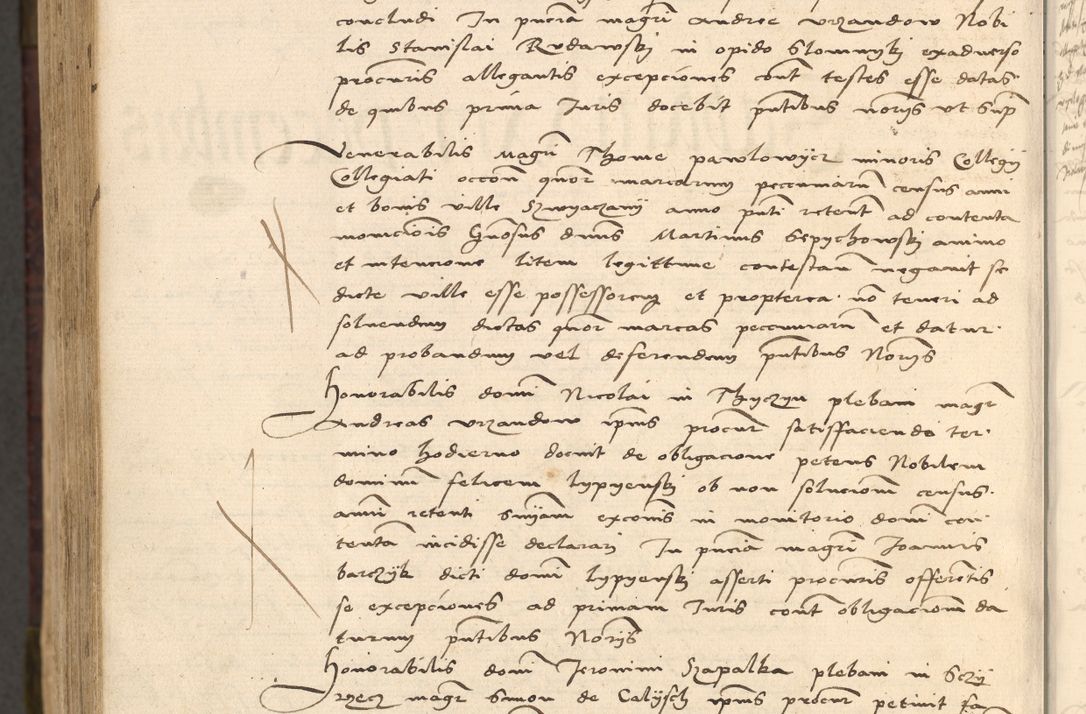 concludi In pncia magri Andree vrzandow Nobi
lis Stanislai Rudawskj in opido Slomnykj exaduerso
procuris allegantis excepciones cont testes esse datas
de quibus prima Iuris docebit pntibus norijs vt sup
Venerabilis Magri Thome pawlowycz minoris Collegij
Collegiati occon quor marcarum peccuniarum census anni
et bonis ville Szwyaczanij anno pnti retent ad contenta
monicionis Gnosus dnus Martinus Sepychowskj animo
et intencione litem legittime contestan negauit se
dicte ville esse possessorem et propterea no teneri ad
soluendum dictas quor marcas peccuniarum et datur
ad probandum vel deferendum pntibus Norijs
Honorabilis domi Nicolai in Thyczyn plebani magr
Andreas vrzandow ipius procur satisfaciendo ter
mino hodierno docuit de obligacione petens Nobilem
dominum felicem lypyenskj ob non solucionem census
anni retenti sniam exconis in monitorio domi con
tentam incidisse declarari In pncia magri Joannis
barczyk dicti domi lypyenskj asserti procuris offerentis
se excepciones ad primam Iuris cont obligacionem da
turum pntibus Norijs
Honorabilis domi Jeronimi Szapalka plebani in Sczy
rzecz magr Simon de Calysch ipius procur petiuit fa